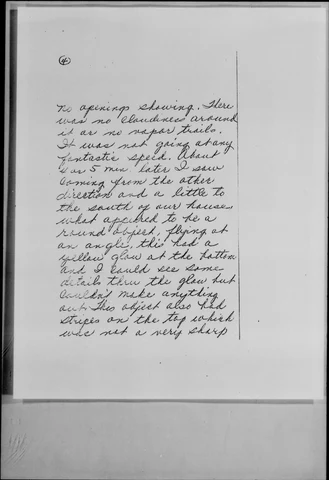 4
no openings showing. There
was no cloudiness around
it or no vapor trails.
It was not going at any
fantastic speed. About
5 min. later I saw
coming from the other
direction and a little to
the south of our house
what appeared to be a
round object, flying at
an angle, this had a
yellow glow at the bottom
and I could see some
details thru the glow but
couldn't make anything
out. This object also had
stripes on the top which
was not a very sharp